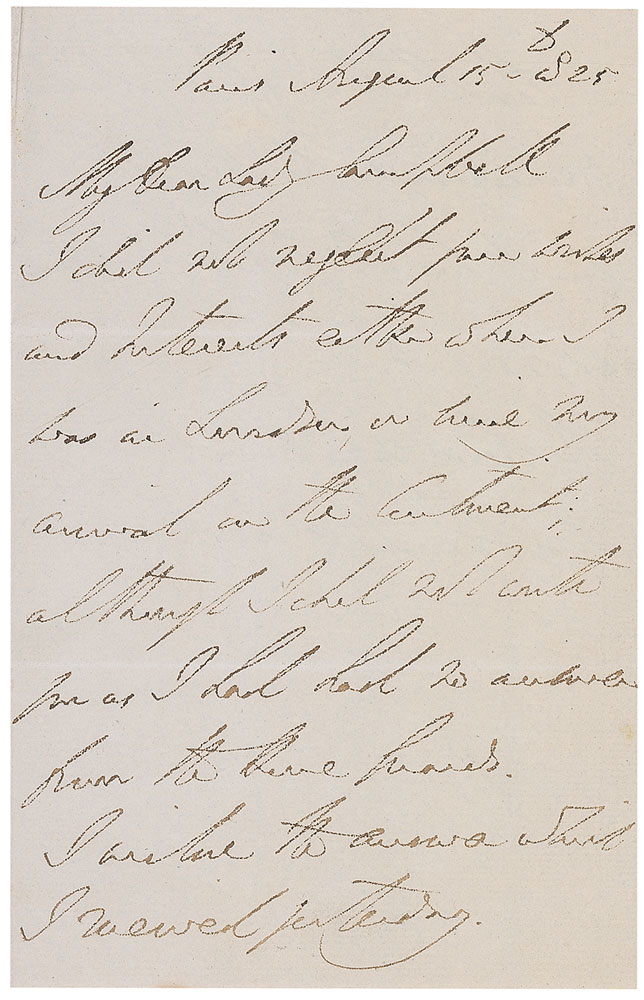 Paris August 15 25
My Dear Lady Campbell
I did not neglect your wishes
and Interests either when I
was in London, or since my
arrival on the Continent;
although I did not write
you as I had had no answer
from the Horse Guards.
I enclose the answer which
I received yesterday.